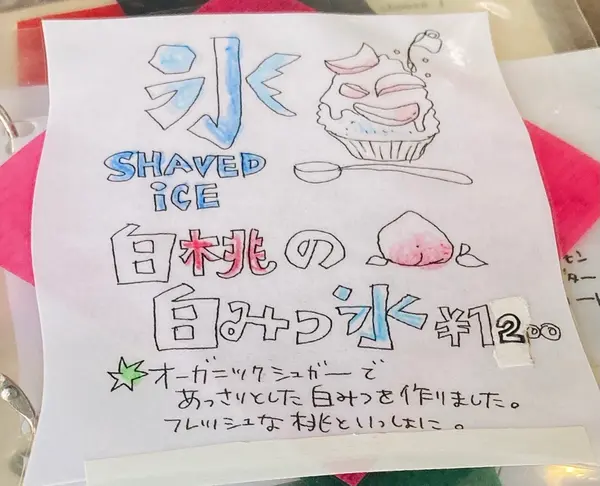 氷
SHAVED
iCE
白桃の
白みつ氷 ¥1200
オーガニックシュガーで
あっさりとした白みつを作りました。
フレッシュな桃といっしょに。